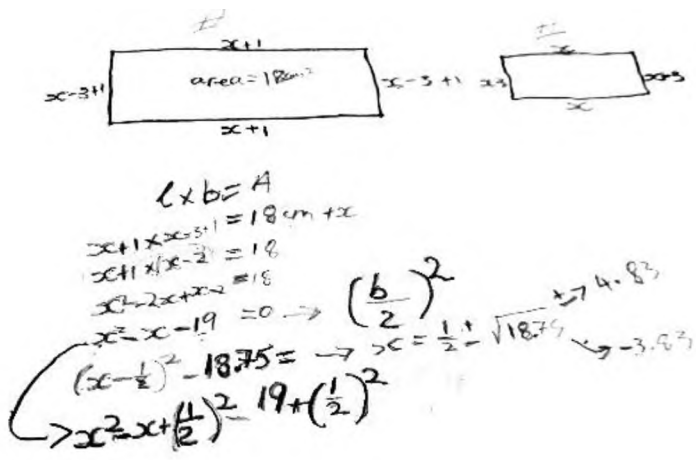 x+1
x
x-3+1 area=18cm² x-3+1
x-3
x+1
x
l×b=A
x+1×x-3+1=18cm
x+1×(x-2=18
x²-2x+x-2=18
x²-x-19=0→(b/2)²
(x-½)²-18.75=→x=½±√18.75 4.83
-3.83
→x²-x+(½)²=19+(½)²